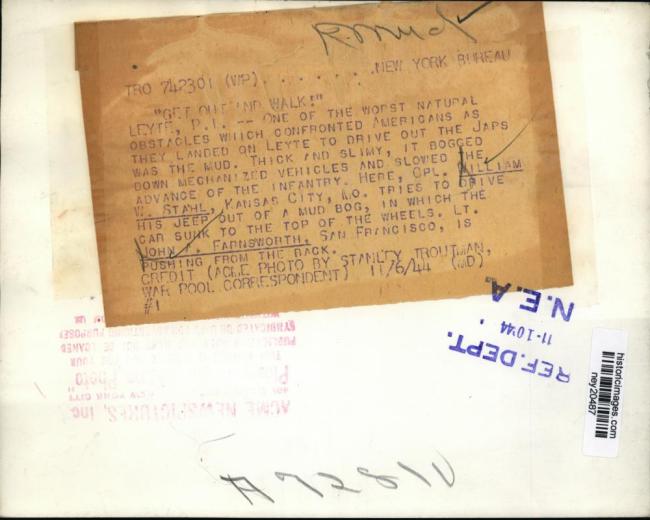 TRO 742301 (WP). . . . . . . .NEW YORK BUREAU
"GET OUT AND WALK!"
LEYTE, P.I. -- ONE OF THE WORST NATURAL
OBSTACLES WHICH CONFRONTED AMERICANS AS
THEY LANDED ON LEYTE TO DRIVE OUT THE JAPS
WAS THE MUD. THICK AND SLIMY, IT BOGGED
DOWN MECHANIZED VEHICLES AND SLOWED THE
ADVANCE OF THE INFANTRY. HERE, CPL. WILLIAM
W. STAHL, KANSAS CITY, MO. TRIES TO DRIVE
HIS JEEP OUT OF A MUD BOG, IN WHICH THE
CAR SUNK TO THE TOP OF THE WHEELS. LT.
JOHN FARNSWORTH, SAN FRANCISCO, IS
PUSHING FROM THE BACK.
CREDIT (ACME PHOTO BY STANLEY TROUTMAN,
WAR POOL CORRESPONDENT) 11/6/44 (MD)
#1
REF. DEPT.
11-10'44
N.E.A.
historicimages.com
ney20487
ACME NEWSPICTURES, Inc.
NEW YORK CITY
Photo
SYNDICATED OR USED FOR ADVERTISING PURPOSES